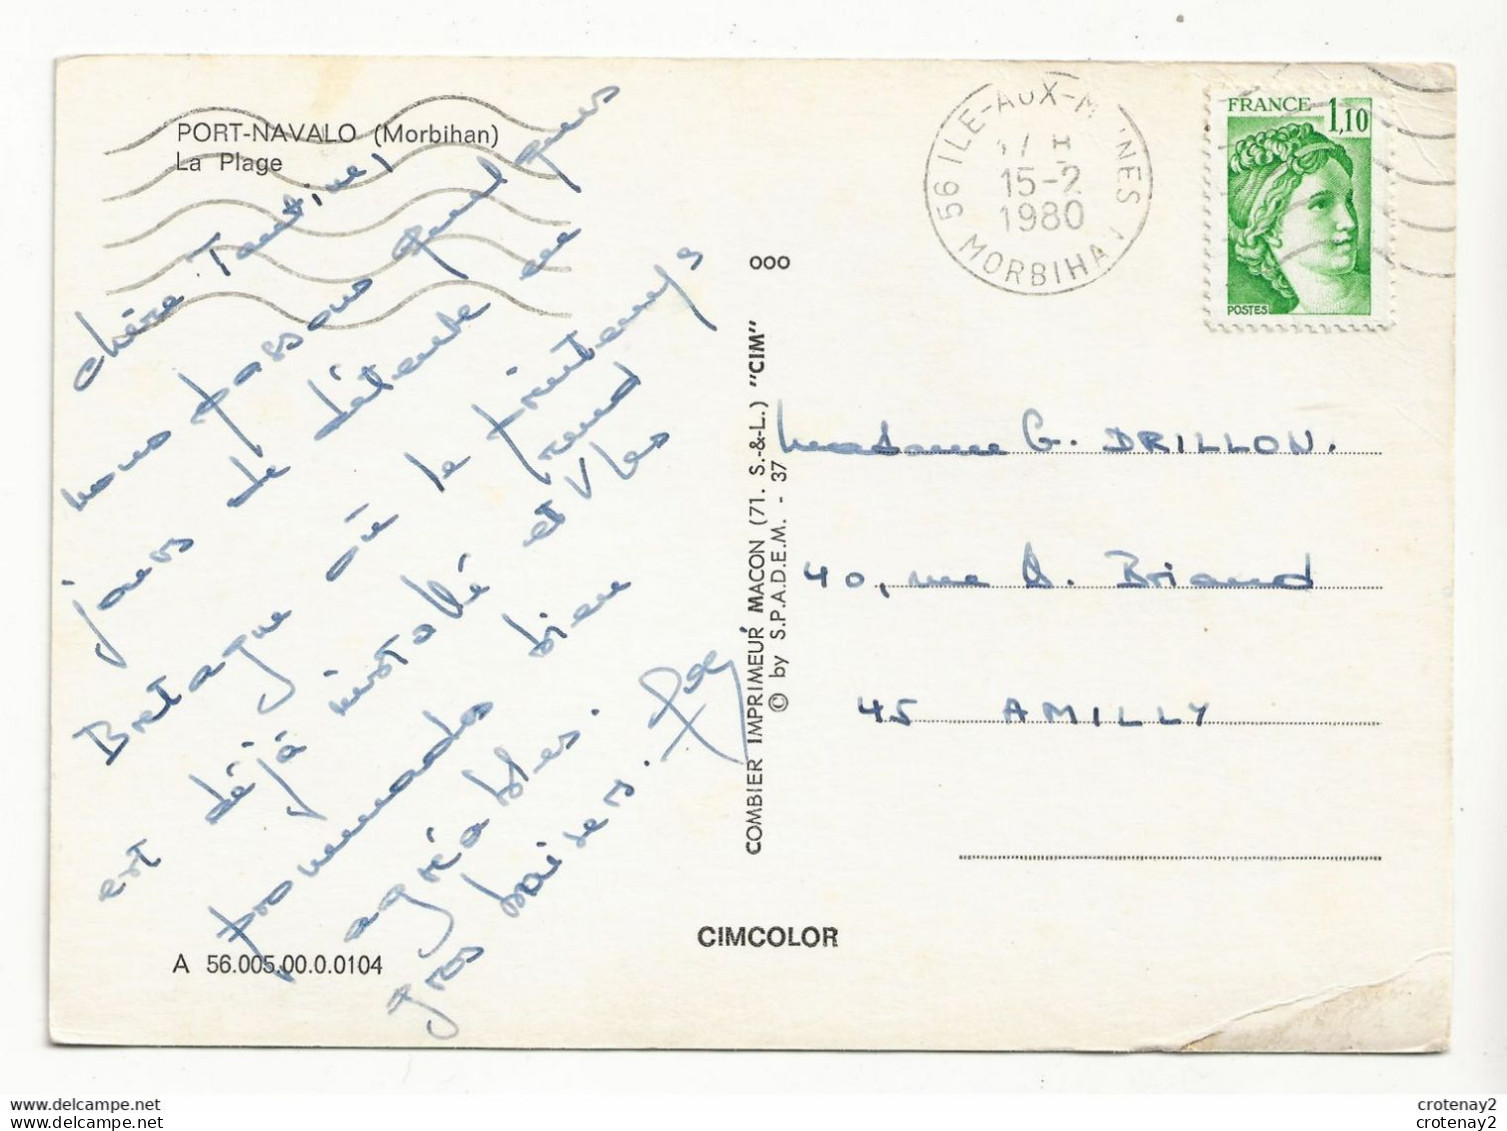 PORT-NAVALO (Morbihan)
La Plage
chère Tantine,
nous passons quelques
jours de détente en
Bretagne où le printemps
est déjà installé et
rend les
promenades bien
agréables.
gros baisers.
A 56.005.00.0.0104
ooo
COMBIER IMPRIMEUR MACON (71. S.-&-L.) "CIM"
© by S.P.A.D.E.M. - 37
CIMCOLOR
56 ILE-AUX-M INES
17 H
15-2
1980
MORBIHAN
FRANCE
1,10
POSTES
Madame G. DRILLON.
40, rue A. Briand
45 AMILLY
delcampe.net
crotenay2
crotenay2